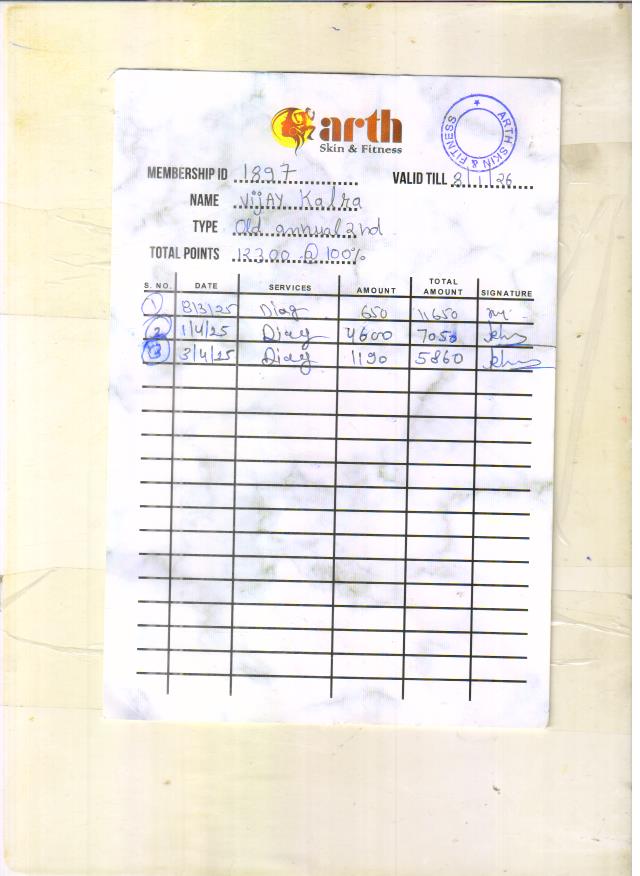 arth
Skin & Fitness
ARTH SKIN & FITNESS
MEMBERSHIP ID 1897
VALID TILL 8/1/26
NAME Vijay Kalra
TYPE Old annual 2nd
TOTAL POINTS 12300 @ 100%
S. NO. DATE SERVICES AMOUNT TOTAL AMOUNT SIGNATURE
1 8/3/25 Diag 650 11650
2 1/4/25 Diag 4600 7050
3 3/4/25 Diag 1190 5860